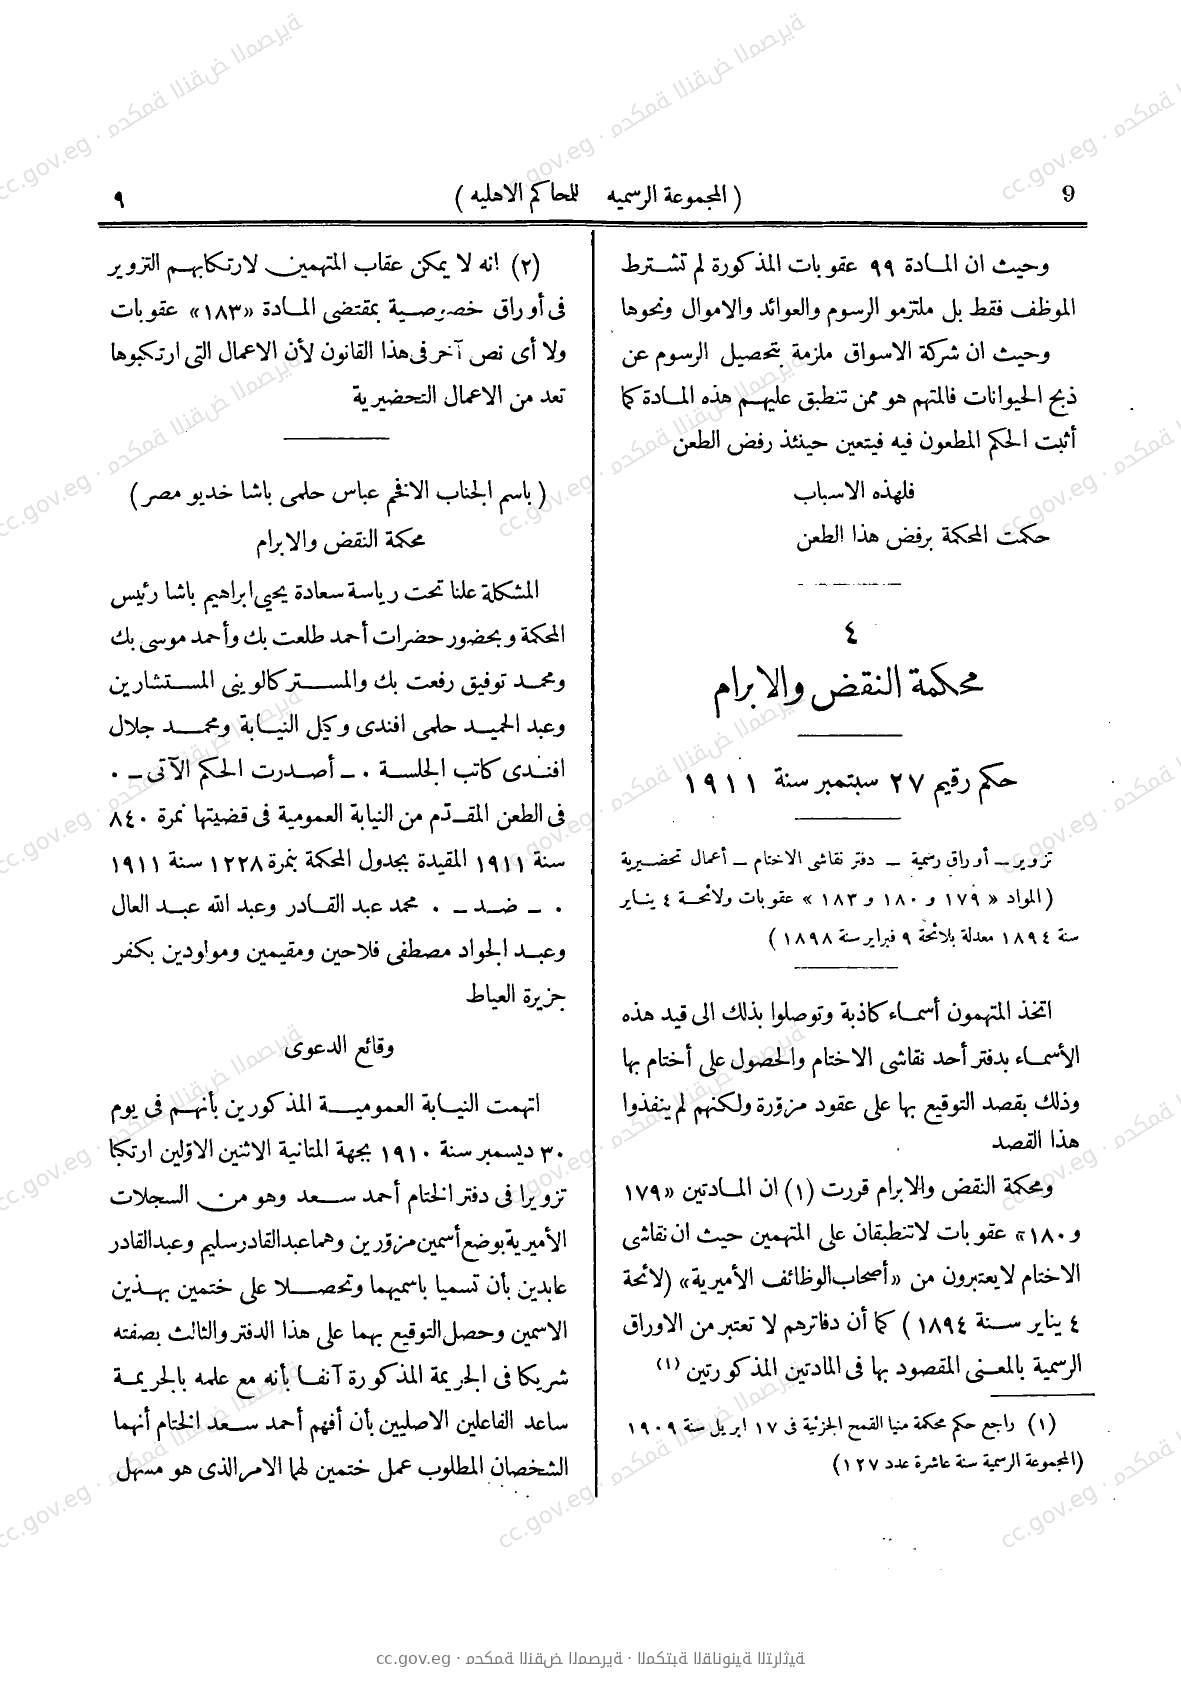 9
( المجموعة الرسميه للمحاكم الاهليه )
٩
وحيث ان المادة ٩٩ عقوبات المذكورة لم تشترط
الموظف فقط بل ملتزمو الرسوم والعوائد والاموال ونحوها
وحيث ان شركة الاسواق ملزمة بتحصيل الرسوم عن
ذبح الحيوانات فالمتهم هو ممن تنطبق عليهم هذه المادة كما
أثبت الحكم المطعون فيه فيتعين حينئذ رفض الطعن
فلهذه الاسباب
حكمت المحكمة برفض هذا الطعن
٤
محكمة النقض والابرام
حكم رقيم ٢٧ سبتمبر سنة ١٩١١
تزوير – أوراق رسمية – دفتر نقاشى الاختام – أعمال تحضيرية
(المواد « ١٧٩ و ١٨٠ و ١٨٣ » عقوبات ولائحة ٤ يناير
سنة ١٨٩٤ معدلة بلائحة ٩ فبراير سنة ١٨٩٨ )
اتخذ المتهمون أسماء كاذبة وتوصلوا بذلك الى قيد هذه
الأسماء بدفتر أحد نقاشى الاختام والحصول على أختام بها
وذلك بقصد التوقيع بها على عقود مزوّرة ولكنهم لم ينفذوا
هذا القصد
ومحكمة النقض والابرام قررت (١) ان المادتين «١٧٩
و١٨٠» عقوبات لاتنطبقان على المتهمين حيث ان نقاشى
الاختام لايعتبرون من «أصحاب الوظائف الأميرية» (لائحة
٤ يناير سنة ١٨٩٤ ) كما أن دفاترهم لا تعتبر من الاوراق
الرسمية بالمعنى المقصود بها فى المادتين المذكورتين (١)
(١) راجع حكم محكمة منيا القمح الجزئية فى ١٧ ابريل سنة ١٩٠٩
(المجموعة الرسمية سنة عاشرة عدد ١٢٧)
(٢) انه لا يمكن عقاب المتهمين لارتكابهم التزوير
فى أوراق خصوصية بمقتضى المادة «١٨٣» عقوبات
ولا أى نص آخر فى هذا القانون لأن الاعمال التى ارتكبوها
تعد من الاعمال التحضيرية
( باسم الجناب الافخم عباس حلمى باشا خديو مصر )
محكمة النقض والابرام
المشكلة علنا تحت رياسة سعادة يحيى ابراهيم باشا رئيس
المحكمة وبحضور حضرات أحمد طلعت بك وأحمد موسى بك
ومحمد توفيق رفعت بك والمستر كالوينى المستشارين
وعبد الحميد حلمى افندى وكيل النيابة ومحمد جلال
افندى كاتب الجلسة . – أصدرت الحكم الآتى – .
فى الطعن المقدّم من النيابة العمومية فى قضيتها نمرة ٨٤٠
سنة ١٩١١ المقيدة بجدول المحكمة بنمرة ١٢٢٨ سنة ١٩١١
. – ضد – . محمد عبد القادر وعبد الله عبد العال
وعبد الجواد مصطفى فلاحين ومقيمين ومولودين بكفر
جزيرة العياط
وقائع الدعوى
اتهمت النيابة العمومية المذكورين بأنهم فى يوم
٣٠ ديسمبر سنة ١٩١٠ بجهة المتانية الاثنين الاوّلين ارتكبا
تزويرا فى دفتر الختام أحمد سعد وهو من السجلات
الأميرية بوضع أسمين مزوّرين وهما عبدالقادر سليم وعبدالقادر
عابدين بأن تسميا باسميهما وتحصلا على ختمين بهذين
الاسمين وحصل التوقيع بهما على هذا الدفتر والثالث بصفته
شريكا فى الجريمة المذكورة آنفا بأنه مع علمه بالجريمة
ساعد الفاعلين الاصليين بأن أفهم أحمد سعد الختام أنهما
الشخصان المطلوب عمل ختمين لهما الامر الذى هو مسهل
cc.gov.eg · محكمة النقض المصرية · المكتبة القانونية التراثية